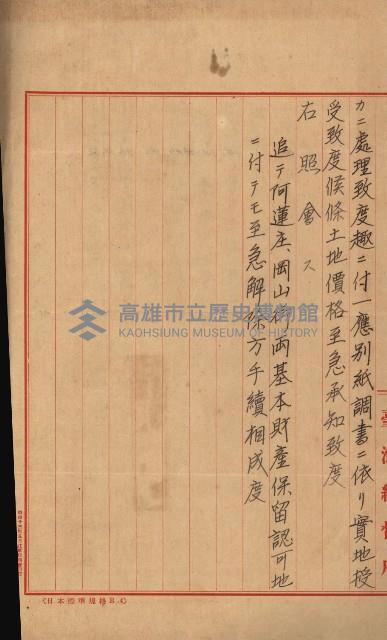 カニ處理致度趣ニ付一應別紙調書ニ依リ實地授
受致度候條土地價格至急承知致度
右照會ス
追テ阿蓮庄、岡山街兩基本財產保留認可地
ニ付テモ至急解除方手續相成度
高雄市立歷史博物館
KAOHSIUNG MUSEUM OF HISTORY
臺灣總督府
(日本標準規格B4)